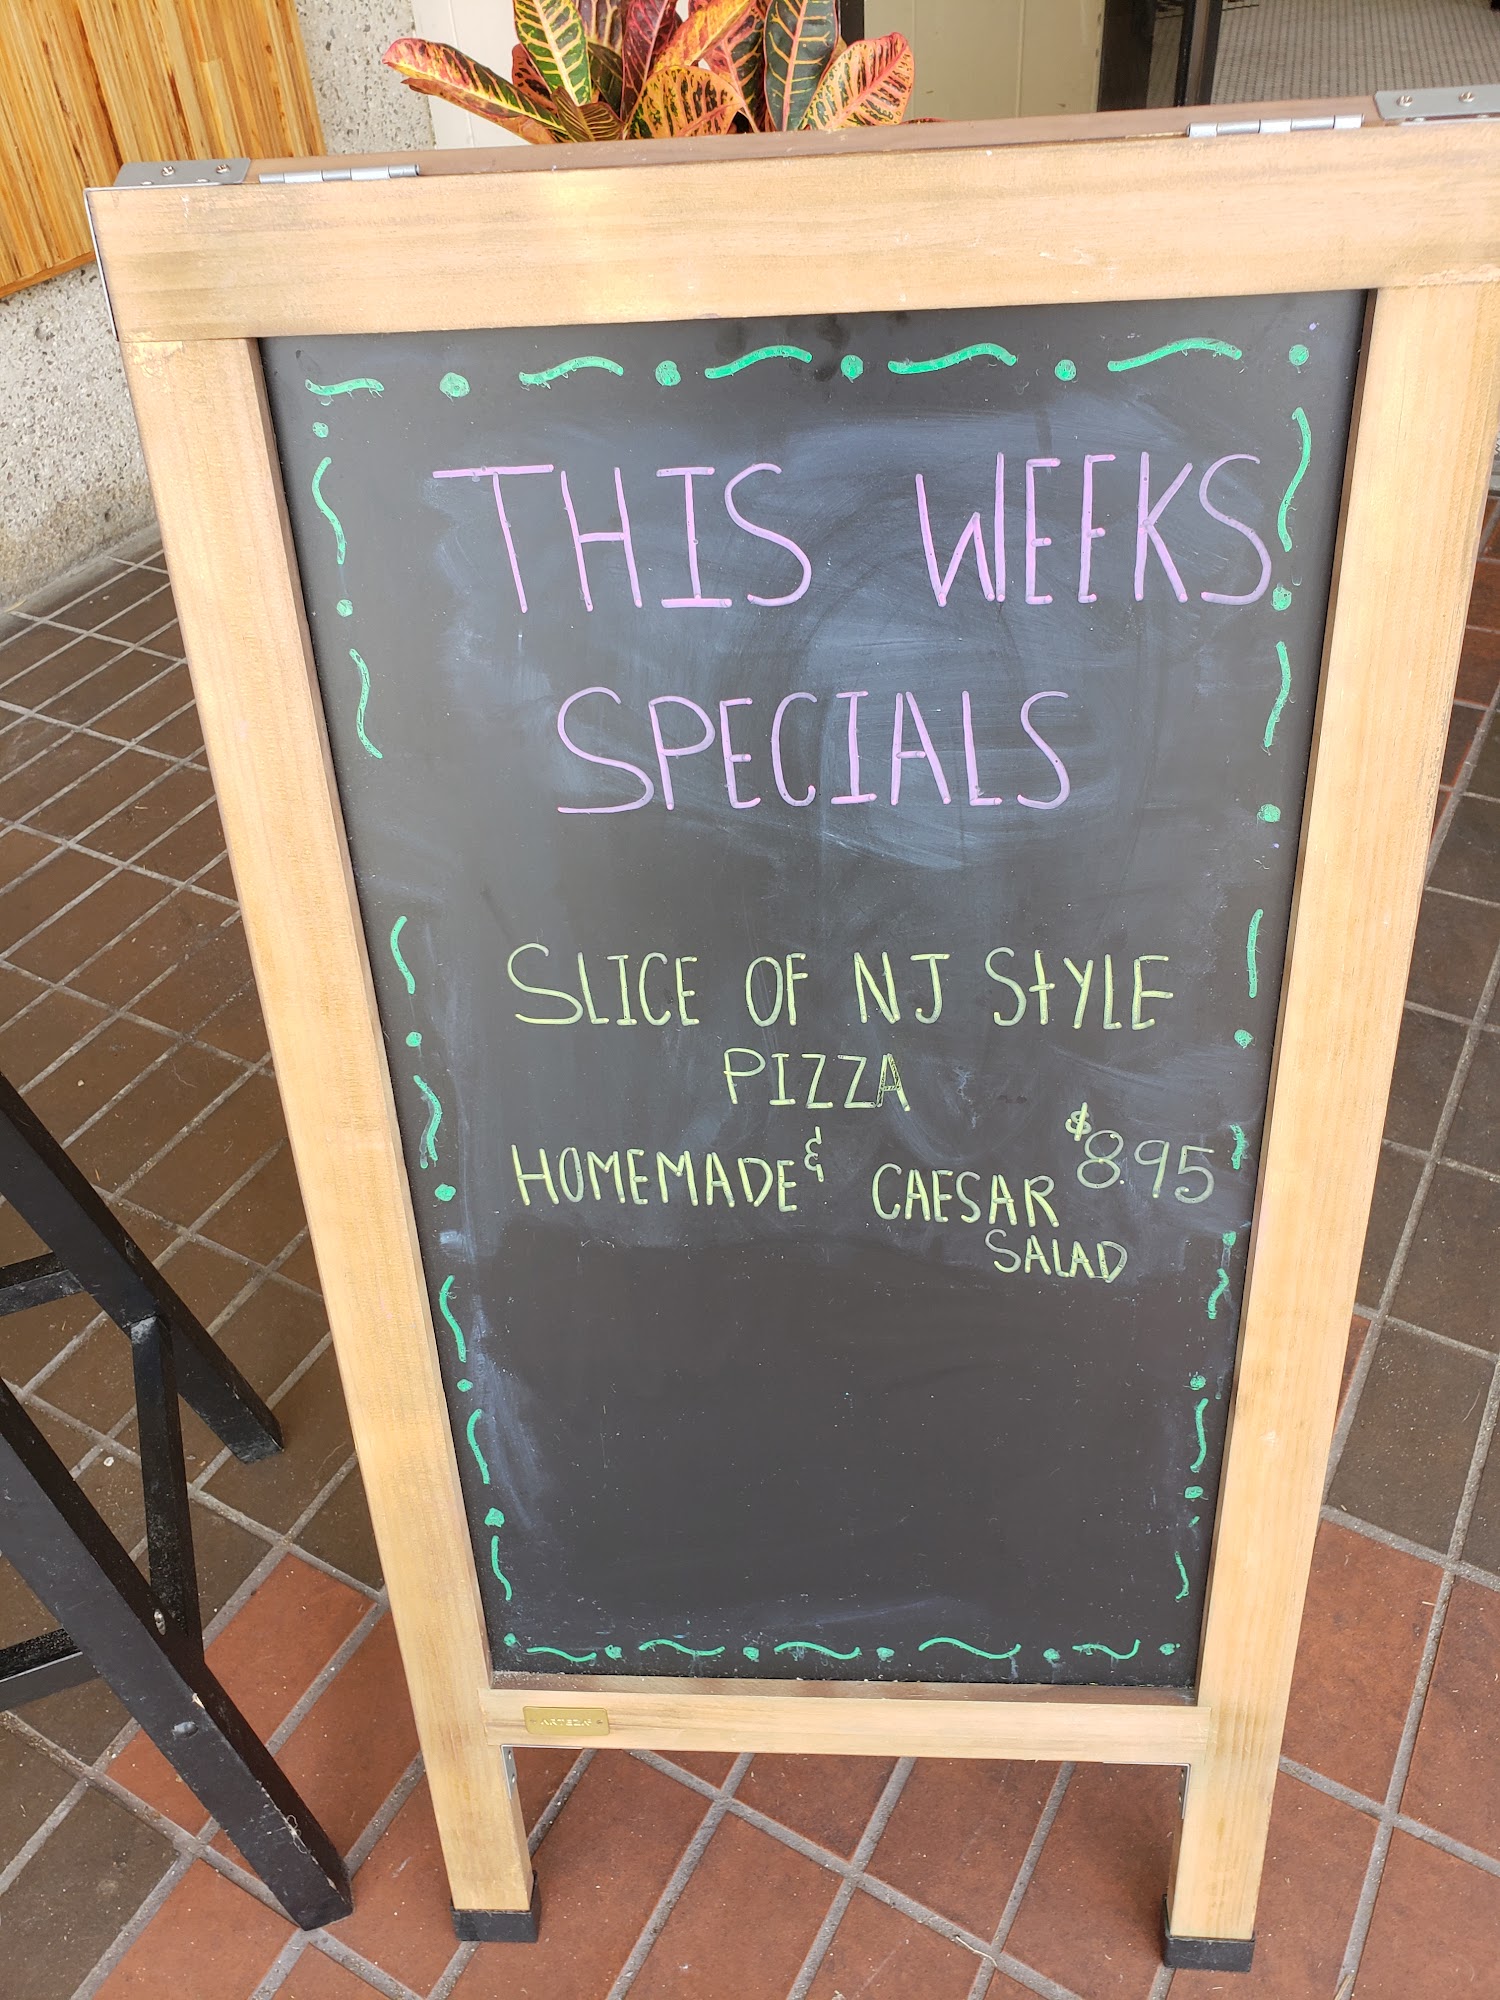 THIS WEEKS
SPECIALS
SLICE OF NJ STYLE
PIZZA
&
HOMEMADE CAESAR $8.95
SALAD
ARTEZA